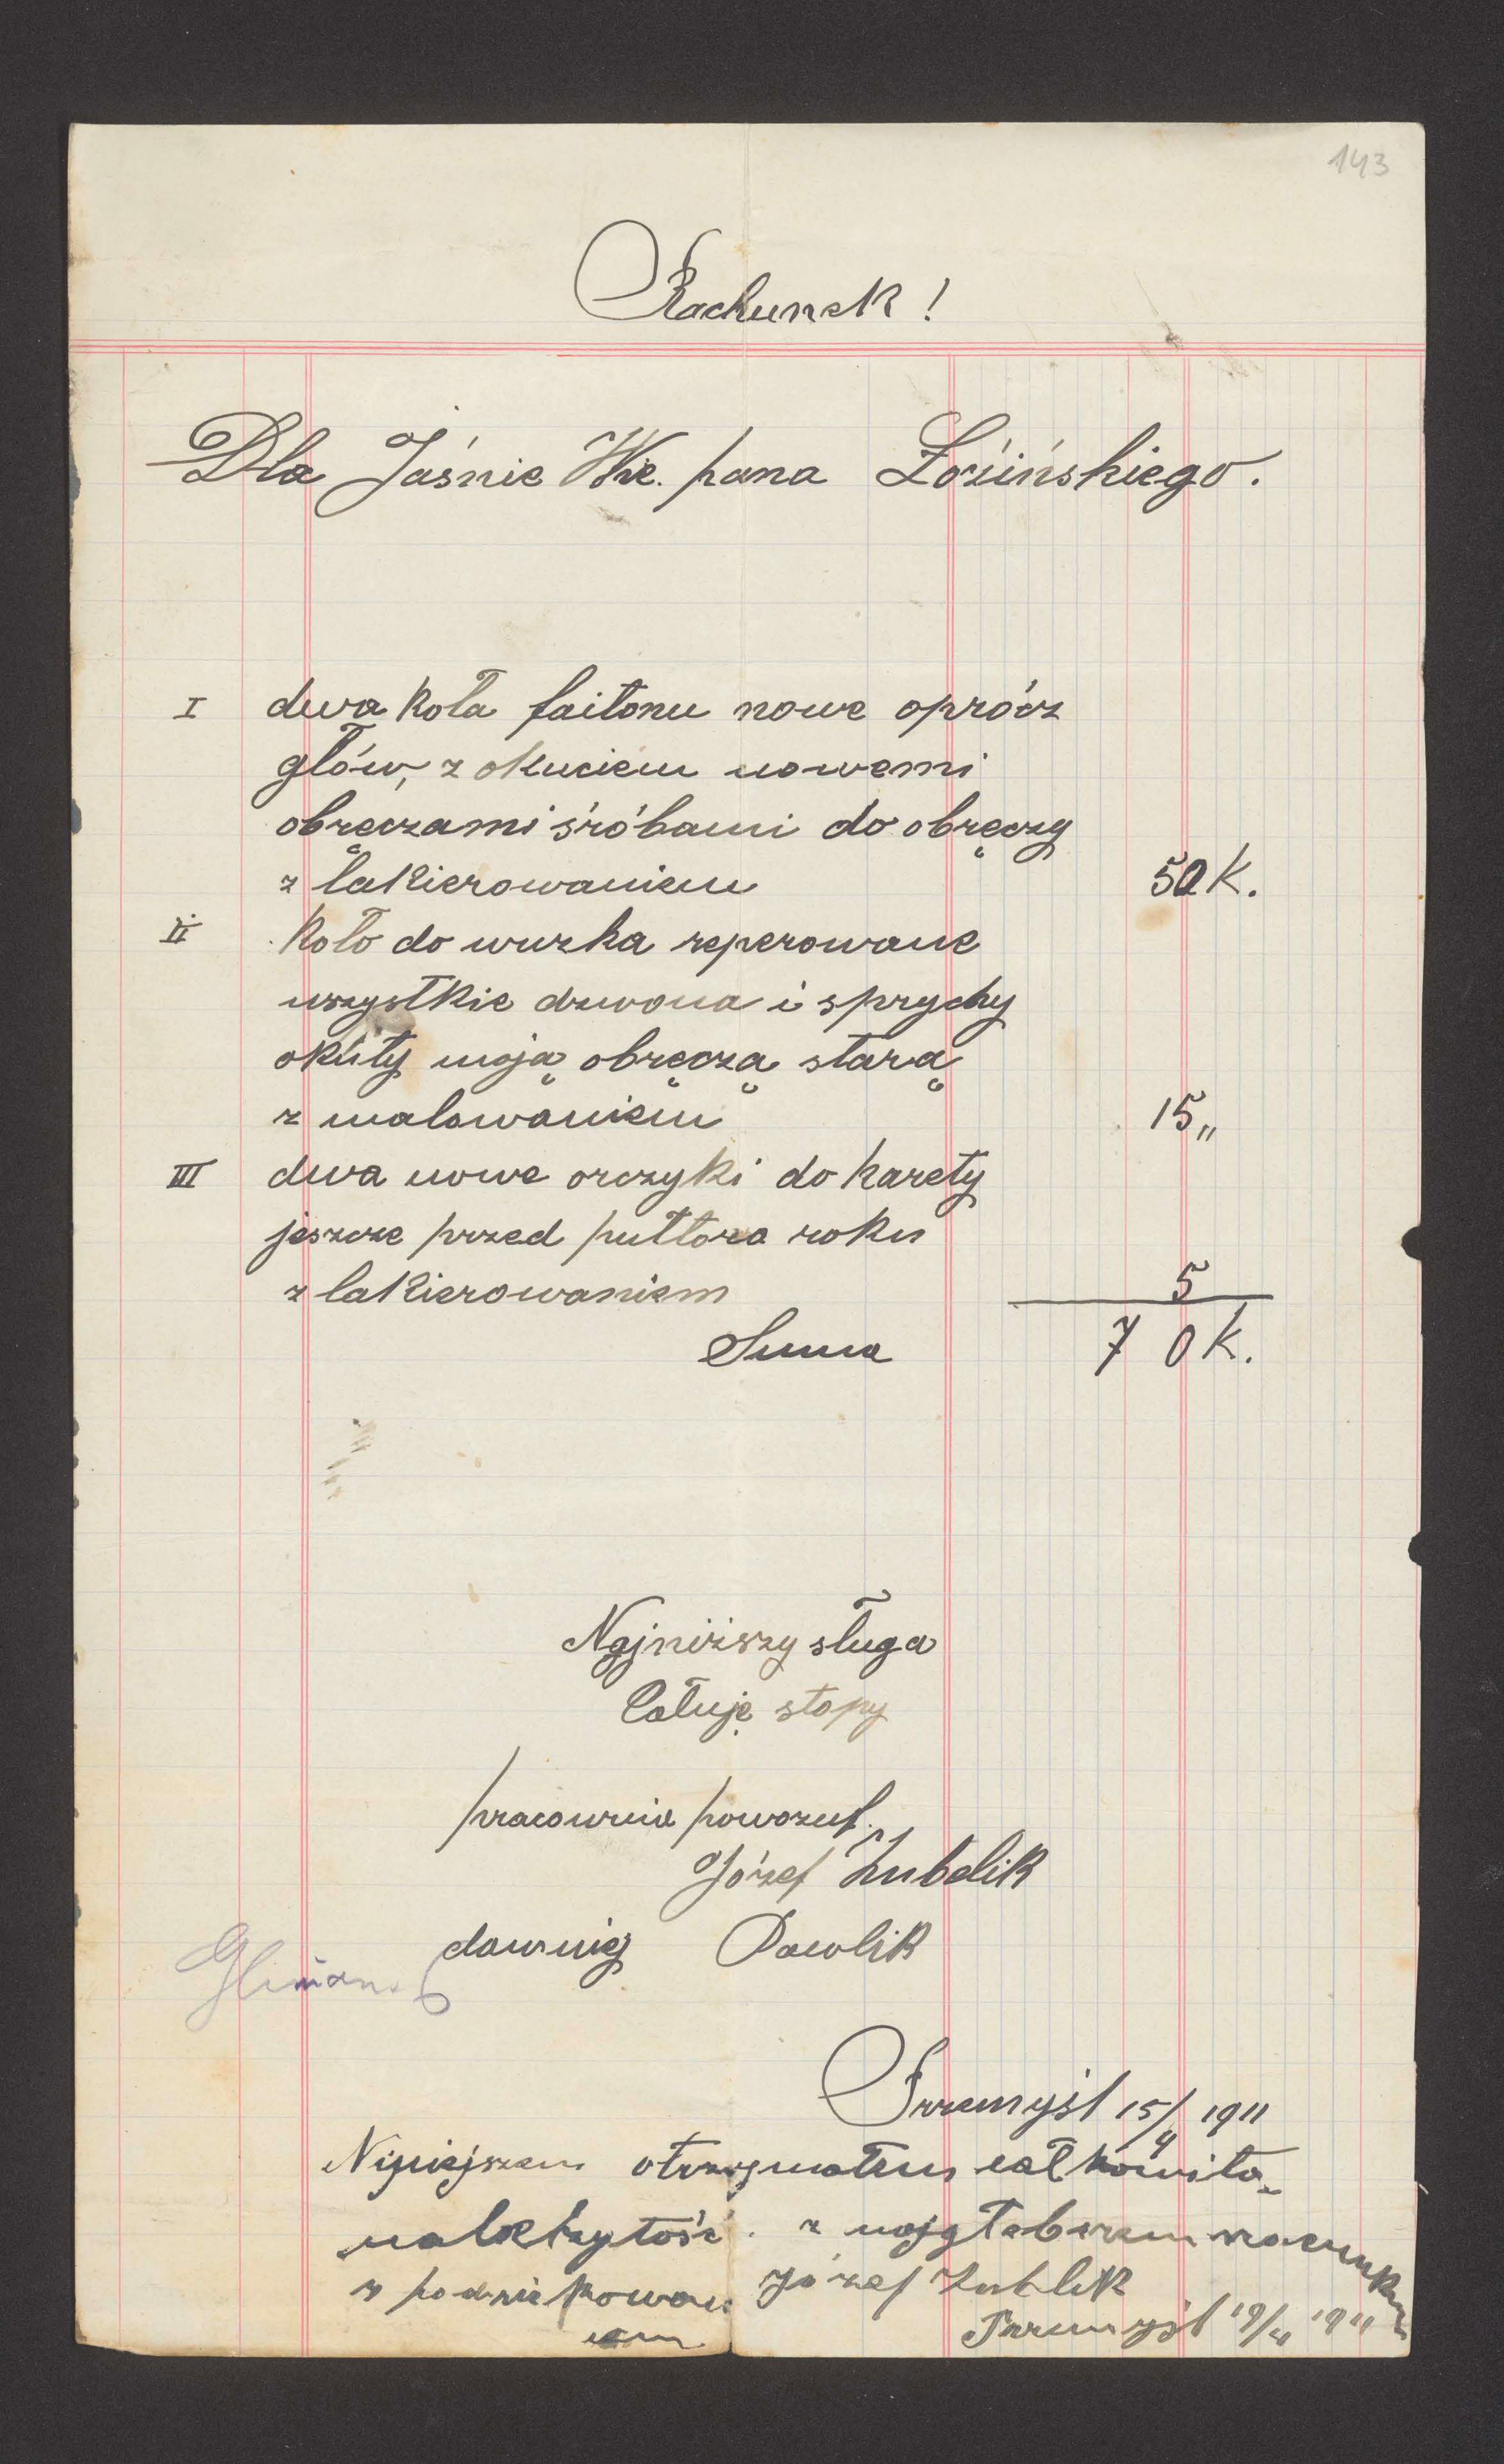 143
Rachunek!
Dla Jaśnie Wie. pana Łozińskiego.
I dwa koła faitonu nowe oprócz
głów, z okuciem nowemi
obręczami śróbami do obręczy
z lakierowaniem 50 K.
II koło do wuzka reperowane
wszystkie dzwona i sprychy
okúty moją obręczą starą
z malowaniem 15 „
III dwa nowe orczyki do karety
jeszcze przed puttora roku
z lakierowaniem 5
Suma 70 K.
Najniższy sługa
Całuję stopy
pracownia powozuf.
Józef Zubelik
dawniej Pawlik
Przemyśl 15/4 1911
Niniejszem otrzymałem całkowita
należytość z
z podziękowan
iem
Józef Zubelik
Przemyśl 19/4 1911